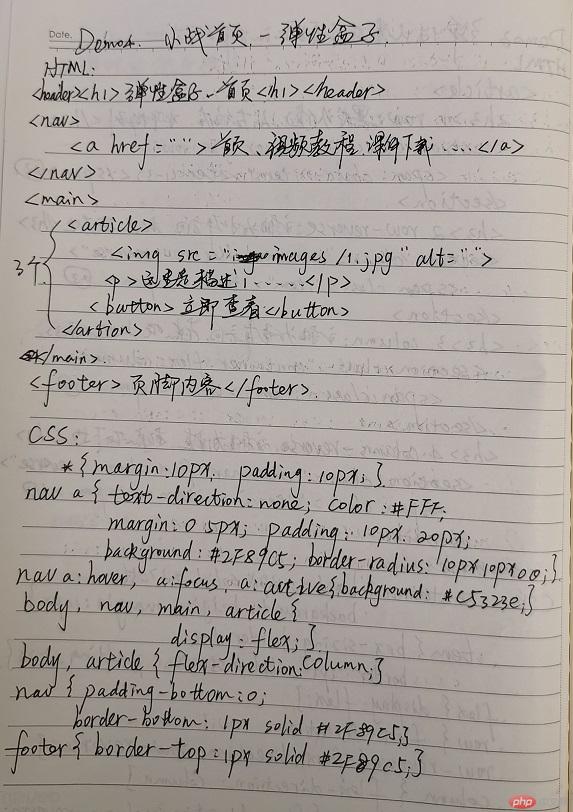 Date.
Demo4. 小战首页 - 弹性盒子
HTML:
<header><h1>弹性盒子、首页<h1><header>
<nav>
<a href="">首页、视频教程、课件下载......</a>
</nav>
<main>
<article>
3个
<img src="images/1.jpg" alt="">
<p>这里是描述1......</p>
<button>立即查看</button>
</artion>
</main>
<footer>页脚内容</footer>
CSS:
*{margin:10px, padding:10px;}
nav a{ text-direction:none; color:#FFF;
margin:0 5px; padding: 10px 20px;
background:#2F89C5; border-radius:10px 10px 0 0;}
nav a:hover, a:focus, a:active{background: #C5323e;}
body, nav, main, article{
display:flex;}
body, article{flex-direction:column;}
nav{padding-bottom:0;
border-bottom: 1px solid #2F89C5;}
footer{border-top:1px solid #2F89c5;}
php